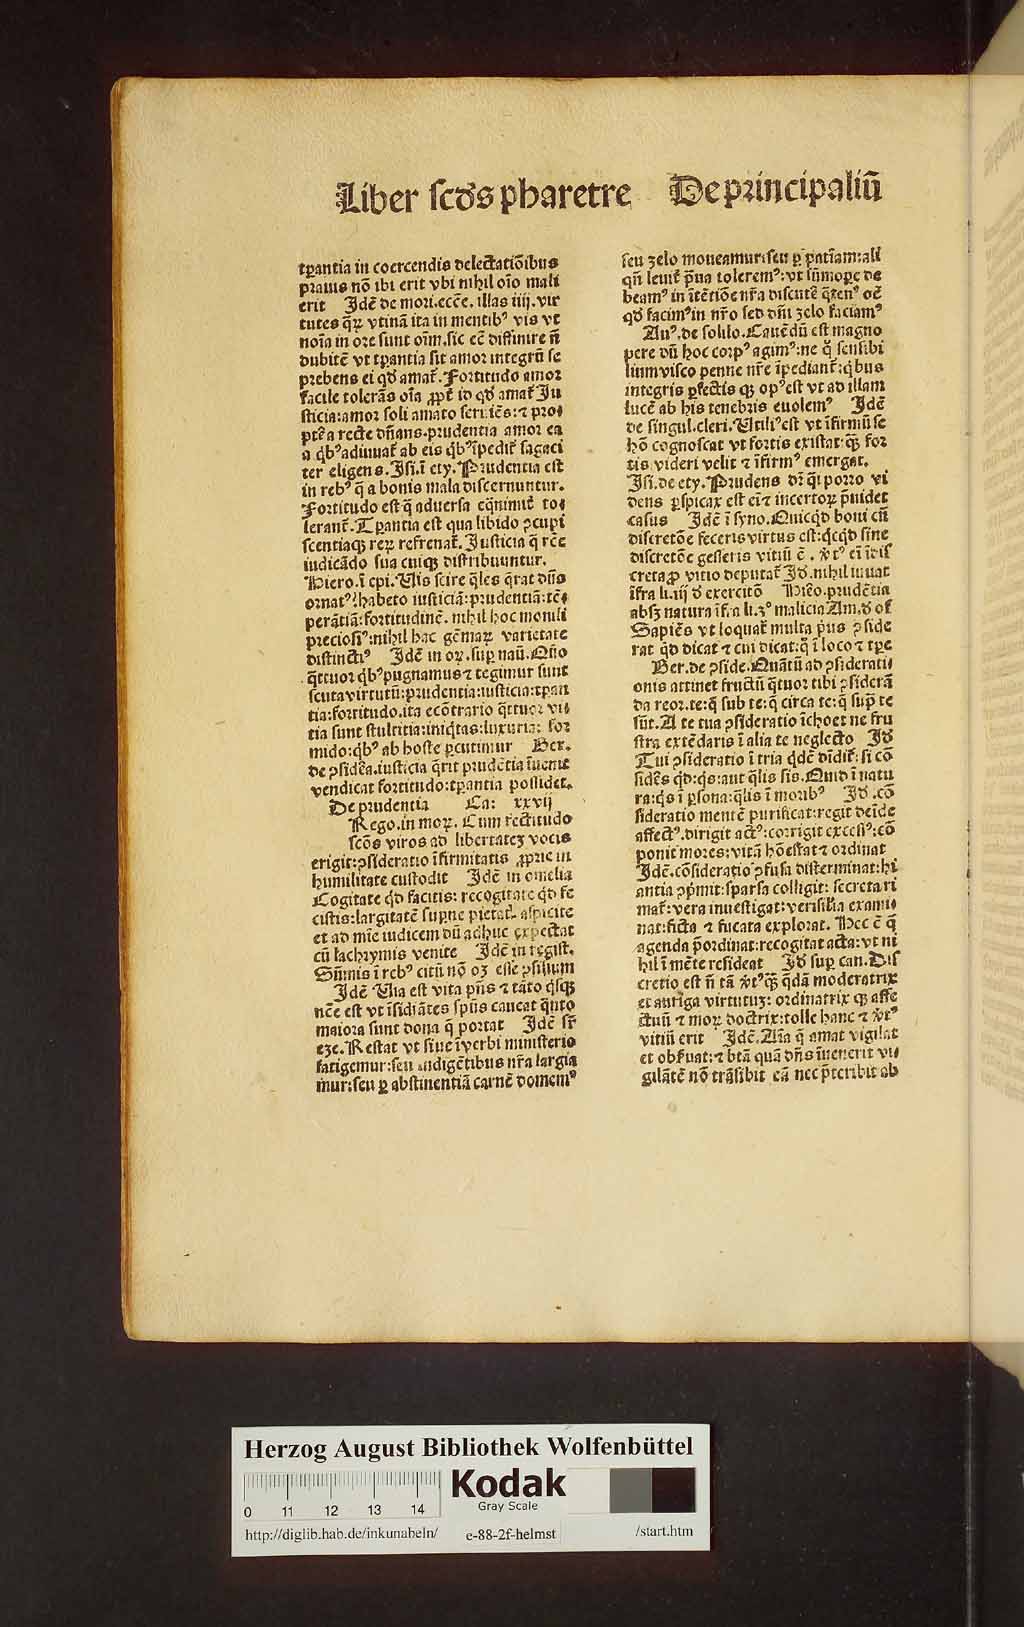 Liber scd's pharetre De principaliū
tꝑantia in coercendis delectatiōibus
prauis nō ibi erit vbi nihil oīo mali
erit Idē de mori.ecce. illas iiij. vir
tutes q̄ꝝ vtinā ita in mentibꝰ vis vt
noīa in ore sunt oīm.sic eē diffinire n̄
dubitē vt tꝑantia sit amor integrū se
prebens ei qđ amat᷑. Fortitudo amor
facile tolerās oīa ꝓpt᷑ id qđ amat᷑ Iu
sticia:amor soli amato seruiēs:⁊ pro-
pt᷑ea recte dn̄ans.prudentia amor ea
a q̇bꝰ adiuuat᷑ ab eis q̇bꝰ īpedit᷑ sagaci
ter eligens. Isi.ī ety. Prudentia est
in rebꝰ q̄ a bonis mala discernuntur.
Fortitudo est q̄ aduersa eq̄nimit᷑ to-
lerant᷑. Tꝑantia est qua libido ↄcupi
scentiaqꝫ reꝝ refrenat᷑. Iusticia q̄ rc̄e
iudicādo sua cuiqꝫ distribuuntur.
Hiero.ī epi. Vis scire q̄les q̄rat dn̄s
ornatꝰ? habeto iusticiā:prudentiā:tē-
perātiā:fortitudinē. nihil hoc monili
preciosiꝰ:nihil hac gēmaꝝ varietate
distinctiꝰ Idē in oꝝ.suꝑ naū. Qn̄o
q̄ttuor q̇bꝰ pugnamus ⁊ tegimur sunt
scuta virtutū:prudentia:iusticia:tꝑan
tia:fortitudo.ita ecōtrario q̄ttuor vi-
tia sunt stultitia:iniq̇tas:luxuria: for
mido:q̇bꝰ ab hoste ꝑcutimur Ber.
de ↄsidēa.iusticia q̄rit prudētia īuenit
vendicat fortitudo:tꝑantia possidet.
De prudentia Ca: xxvij
Rego.in moꝝ. Cum rectitudo
scōs viros ad libertateꝫ vocis
erigit:ↄsideratio īfirmitatis ꝓprie in
humilitate custodit Idē in omelia
Cogitate qđ facitis: recogitate qđ fe
cistis:largitatē supne pietat᷑ aspicite
et ad mīe iudicem dū adhuc expectat
cū lachrymis venite Idē in regist᷑.
Sūmis ī rebꝰ citū nō oꝫ esse ↄsilium
Idē Via est vita pn̄s ⁊ tāto q̇sqꝫ
nēce est vt īsidiātes spūs caueat q̄nto
maiora sunt dona q̄ portat Idē sr̄
eze. Restat vt siue ī verbi ministerio
fatigemur:seu indigētibus nr̄a largia
mur:seu ꝑ abstinentiā carnē domemꝰ
seu zelo moueamur:seu ꝑ patīam:ali
qn̄ leuit᷑ p̄ua toleremꝰ:vt sūmope de
beamꝰ in ītētiōe nr̄a discute q̄tenꝰ oē
qđ facimꝰ in nr̄o sed dn̄i zelo faciamꝰ
Auꝰ.de solilo. Cauēdū est magno
pere dū hoc corpꝰ agimꝰ:ne q̊ sensibi
lium visco penne nr̄e īpediant᷑:q̇bus
integris ꝑfectis qꝫ opꝰ est vt ad illam
lucē ab his tenebris euolemꝰ Idē
de singul.cleri. Vtiliꝰ est vt īfirmū se
hō cognoscat vt fortis existat:qꝫ for
tis videri velit ⁊ īfirmꝰ emergat.
Isi.de ety. Prudens dr̄ q̇i porro vi
dens ꝑspicax est ei⁊ incertoꝝ p̄uidet
casus Idē ī syno. Quicq̇d boni cū
discretōe feceris virtus est:q̇cq̇d sine
discretōe gesseris vitiū ē. v̇tꝰ eī īdis
creta ꝓ vitio deputat᷑ Id. nihil iuuat
īfra li.iij đ exercitō Hiero.prudētia
absꝫ natura īfra li.3º malicia Am.đ of
Sapiēs vt loquat᷑ multa p̄us ↄside
rat qđ dicat ⁊ cui dicat:q̊ ī loco ⁊ tꝑe
Ber.de ↄside. Quātū ad ↄsiderati-
onis attinet fructū q̄tuor tibi ↄsiderā
da reor.te:q̄ sub te:q̄ circa te:q̄ sup̄ te
sūt. A te tua ↄsideratio īchoet ne fru
stra extēdaris ī alia te neglecto Id
Tui ↄsideratio ī tria q̇dē diīdit᷑: si cō
sidēs qđ:q̇s:aut q̄lis sis. Quid ī natu
ra:q̇s ī ꝑsona:q̄lis ī moribꝰ Id. cō
sideratio mentē purificat:regit deīde
affectꝰ.dirigit actꝰ:corrigit excessꝰ:cō
ponit mores:vitā hōestat ⁊ ordinat
Idē.cōsideratio ↄfusa disterminat:hi
antia ↄp̄mit:sparsa colligit: secreta ri
mat᷑:vera inuestigat:verisilia exami-
nat:ficta ⁊ fucata explorat. Hec ē q̄
agenda p̄ordinat:recogitat acta:vt ni
hil ī mēte resideat Id suꝑ can. Dis
cretio est n̄ tā v̇tꝰ qꝫ q̄dā moderatrix
et auriga virtutuꝫ: ordinatrix qꝫ affe
ctuū ⁊ moꝝ doctrix:tolle hanc ⁊ v̇tꝰ
vitiū erit Idē. Aīa q̄ amat vigilat
et obẜuat:⁊ btā quā dn̄s īuenerit vi-
gilātē nō trāsibit eā nec p̄teribit ab
Herzog August Bibliothek Wolfenbüttel
Kodak
Gray Scale
0 11 12 13 14
http://diglib.hab.de/inkunabeln/ e-88-2f-helmst /start.htm